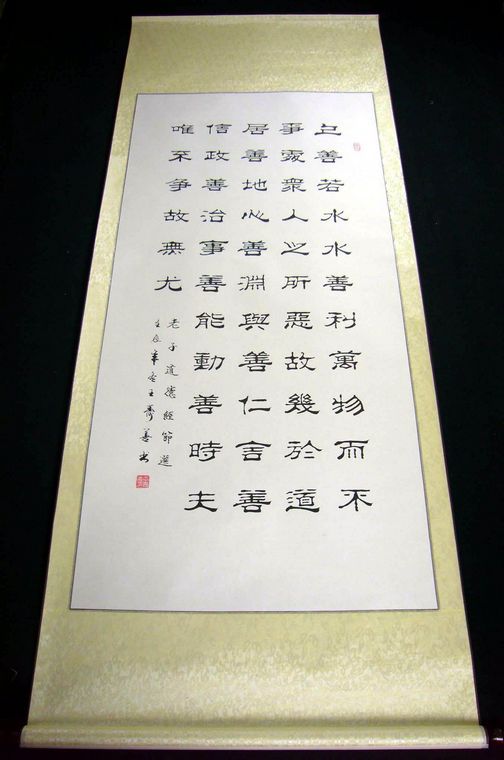 上善若水水善利萬物而不
爭處衆人之所惡故幾於道
居善地心善淵與善仁言善
信政善治事善能動善時夫
唯不爭故無尤
老子道德經節選
壬辰年冬王齊善书